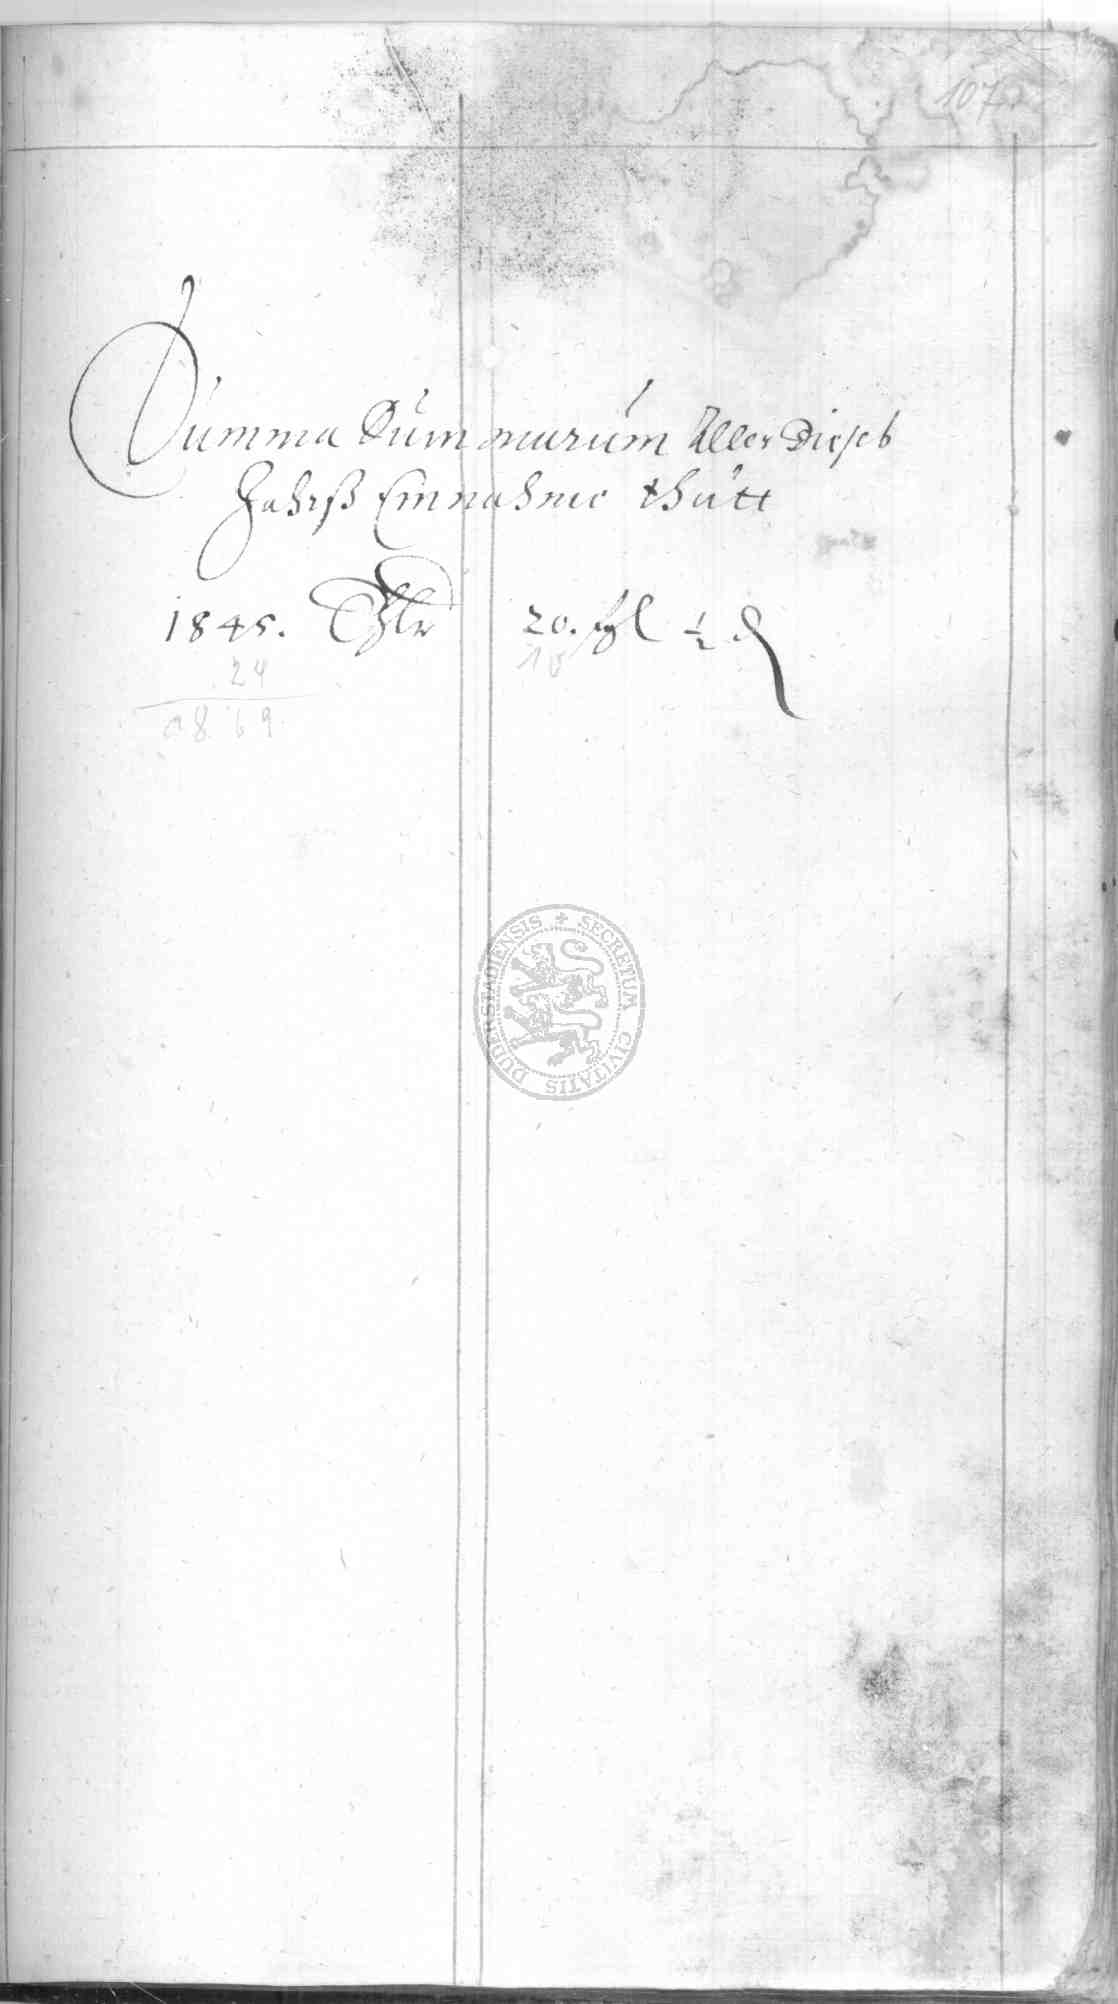 107
Summa Summarum Aller Dieses
Jahrß Einnahme thutt
1845. Thlr 20. ßgl ½ ₰
24 10
1869
SECRETUM CIVITATIS DUDERSTADIENSIS